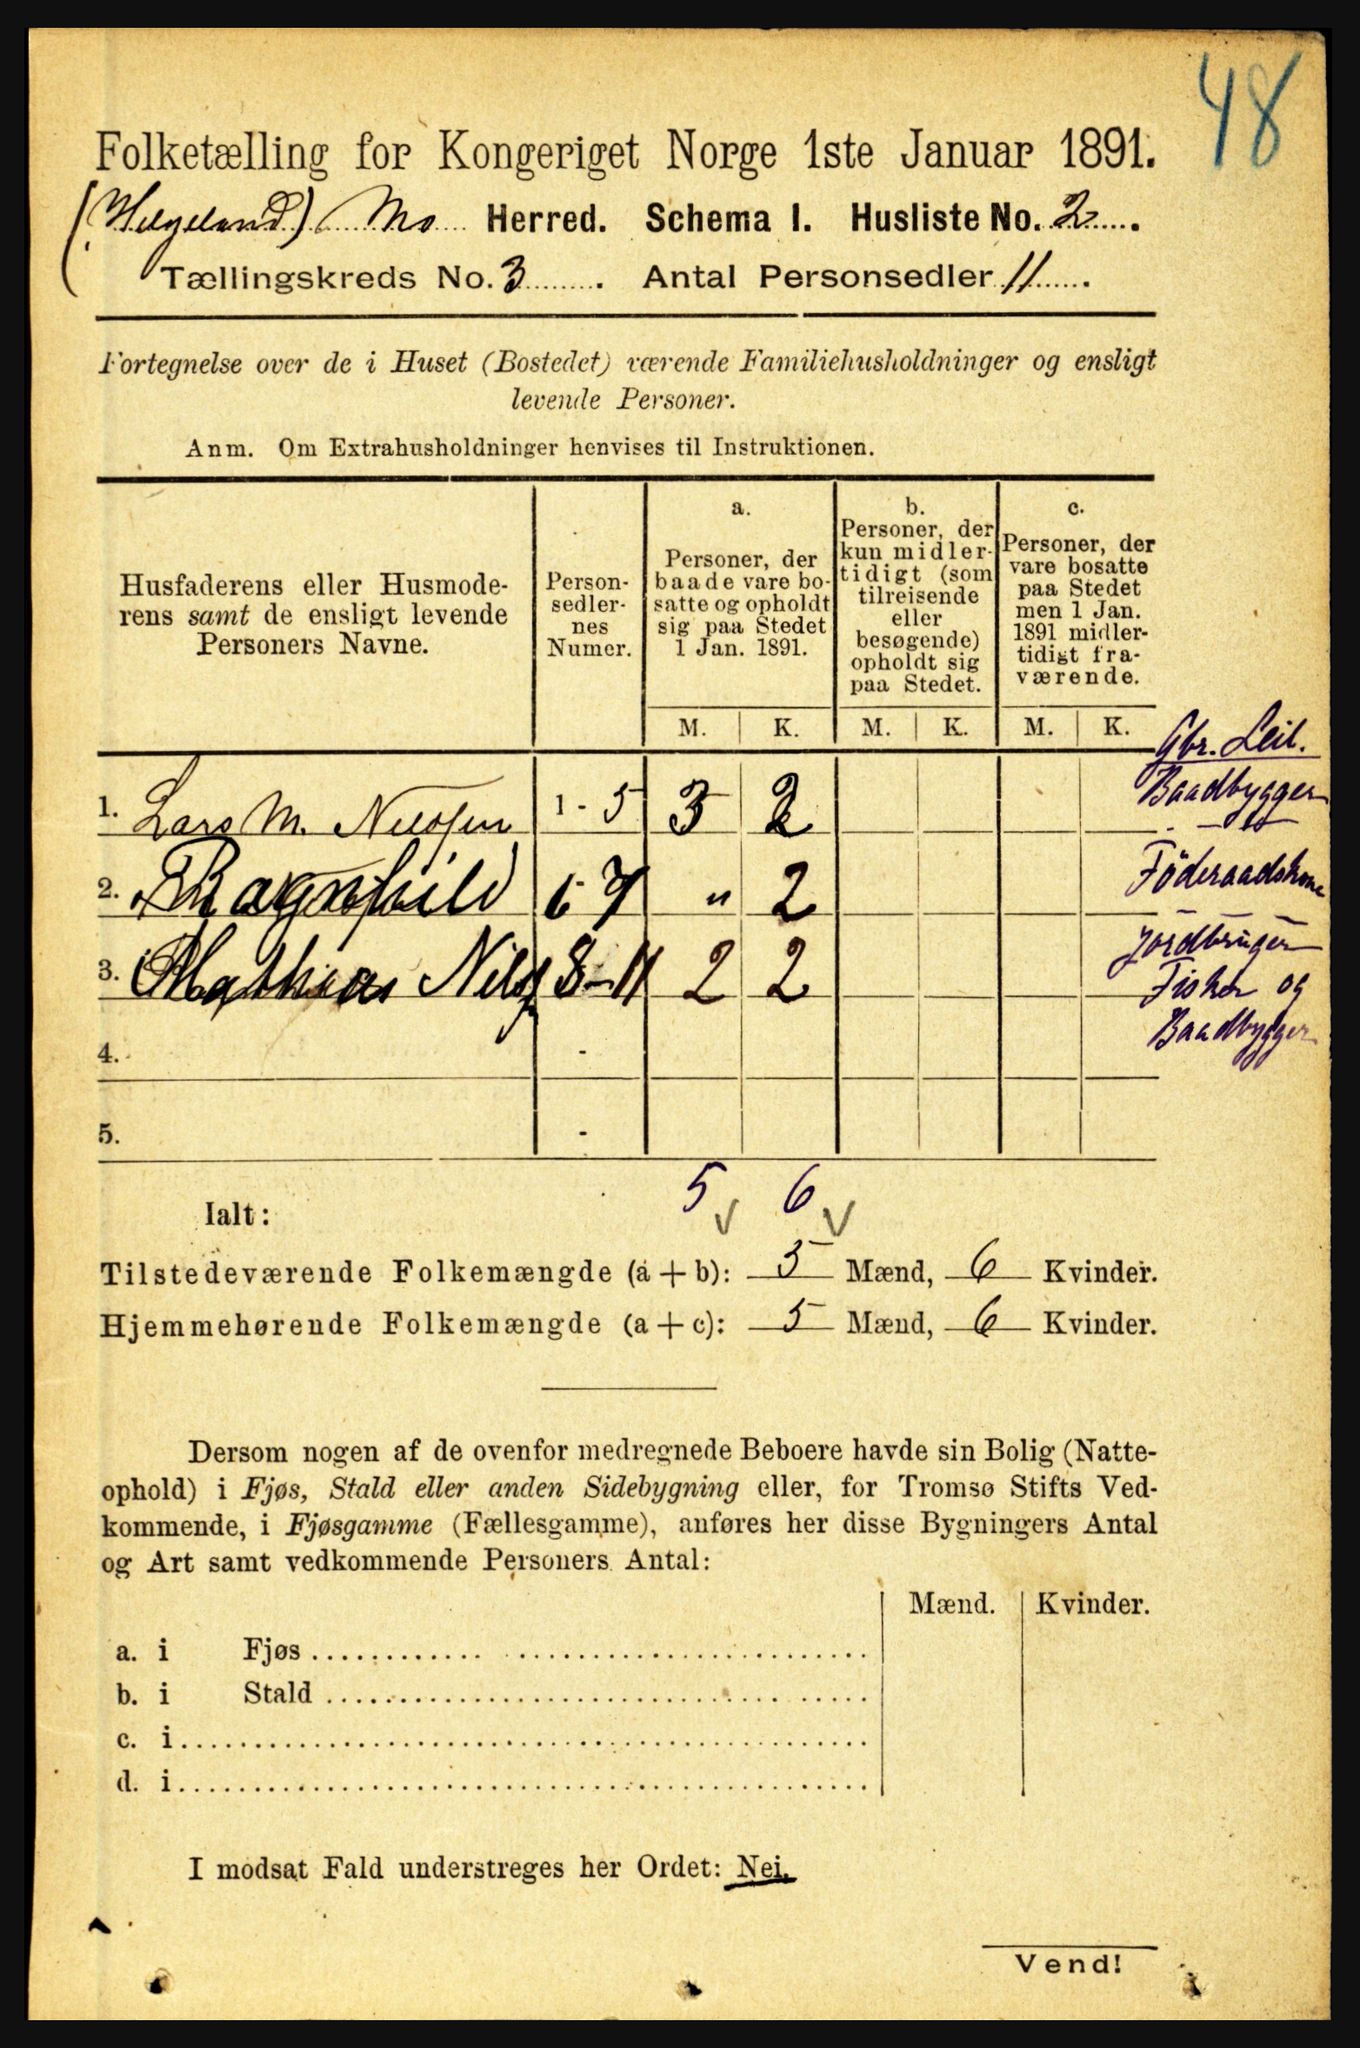 48
Folketælling for Kongeriget Norge 1ste Januar 1891.
(Helgeland) Mo Herred. Schema I. Husliste No. 2
Tællingskreds No. 3. Antal Personsedler 11.
Fortegnelse over de i Huset (Bostedet) værende Familiehusholdninger og ensligt
levende Personer.
Anm. Om Extrahusholdninger henvises til Instruktionen.
Husfaderens eller Husmode-
rens samt de ensligt levende
Personers Navne.
Person-
sedler-
nes
Numer.
a.
Personer, der
baade vare bo-
satte og opholdt
sig paa Stedet
1 Jan. 1891.
b.
Personer, der
kun midler-
tidigt (som
tilreisende
eller
besøgende)
opholdt sig
paa Stedet.
c.
Personer, der
vare bosatte
paa Stedet
men 1 Jan.
1891 midler-
tidigt fra-
værende.
M. K. M. K. M. K.
Gbr. Leil.
Baadbygger
1. Lars M. Nilssen 1 - 5 3 2
2. Ragnhild 6 7 " 2
Föderaadskone
3. Mathias Nils 8 - 11 2 2
Jordbruger
Fisker og
Baadbygger
4. -
5. -
5 6
Ialt:
Tilstedeværende Folkemængde (a + b): 5 Mænd, 6 Kvinder.
Hjemmehørende Folkemængde (a + c): 5 Mænd, 6 Kvinder.
Dersom nogen af de ovenfor medregnede Beboere havde sin Bolig (Natte-
ophold) i Fjøs, Stald eller anden Sidebygning eller, for Tromsø Stifts Ved-
kommende, i Fjøsgamme (Fællesgamme), anføres her disse Bygningers Antal
og Art samt vedkommende Personers Antal:
Mænd. Kvinder.
a. i Fjøs
b. i Stald
c. i
d. i
I modsat Fald understreges her Ordet: Nei.
Vend!